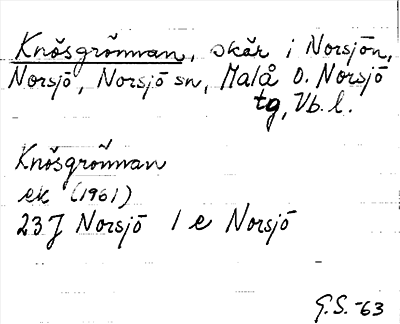 Knösgrönnan, skär i Norsjön,
Norsjö, Norsjö sn, Malå o. Norsjö
tg, Vb. l.
Knösgrönnan
ek (1961)
23J Norsjö 1 e Norsjö
G.S. -63